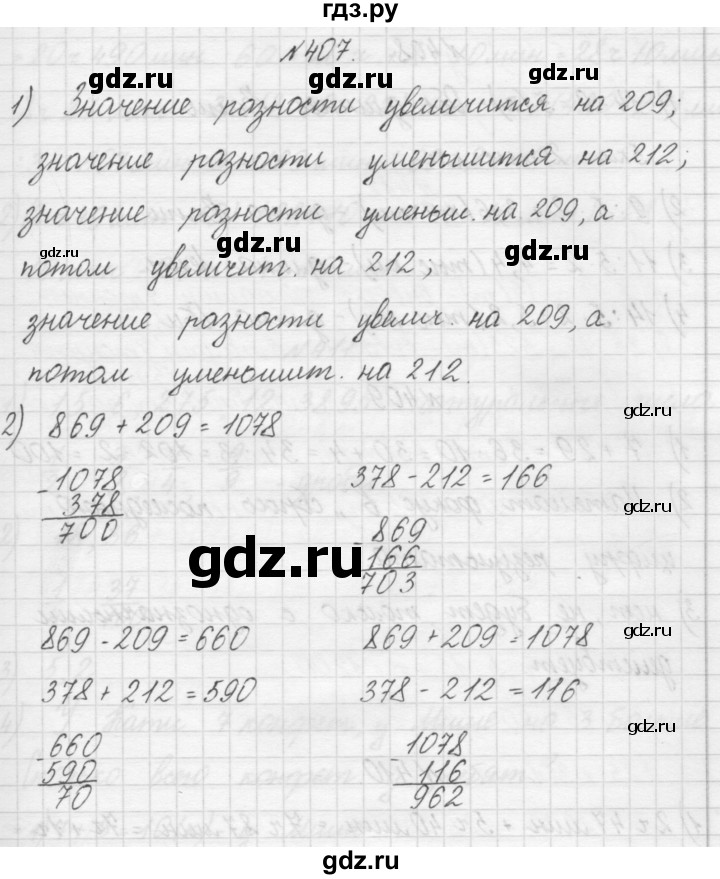 гдз.ру
№407.
gdz.ru gdz.ru gdz.ru
1) Значение разности увеличится на 209;
значение разности уменьшится на 212;
значение разности уменьш. на 209, а
gdz.ru gdz.ru gdz.ru
потом увеличит. на 212;
значение разности увелич. на 209, а
потом уменьшит. на 212.
gdz.ru
2) 869 + 209 = 1078
- 1078 378 - 212 = 166
378
700
gdz.ru
- 869
166
703
gdz.ru
gdz.ru
869 - 209 = 660 869 + 209 = 1078
378 + 212 = 590 378 - 212 = 116
gdz.ru
- 660 1078
590 - 116
70 962
gdz.ru